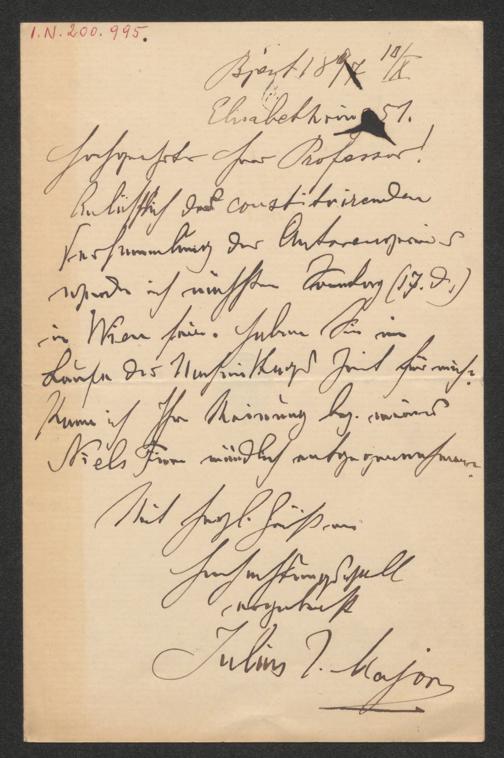 I.N. 200.995.
Bpest 1897 10/X
Elisabethring 51.
Hochgeehrter Herr Professor!
Anläßlich der constituirenden
Versammlung der Autorengenossen
werde ich nächsten Sonntag (17. d.)
in Wien sein. Haben Sie im
Laufe des Nachmittags Zeit für mich?
Kann ich Ihre Meinung bez. meines
Niels Finn mündlich entgegennehmen?
Mit herzl. Grüßen
Hochachtungsvoll
ergebenst
Julius J. Major